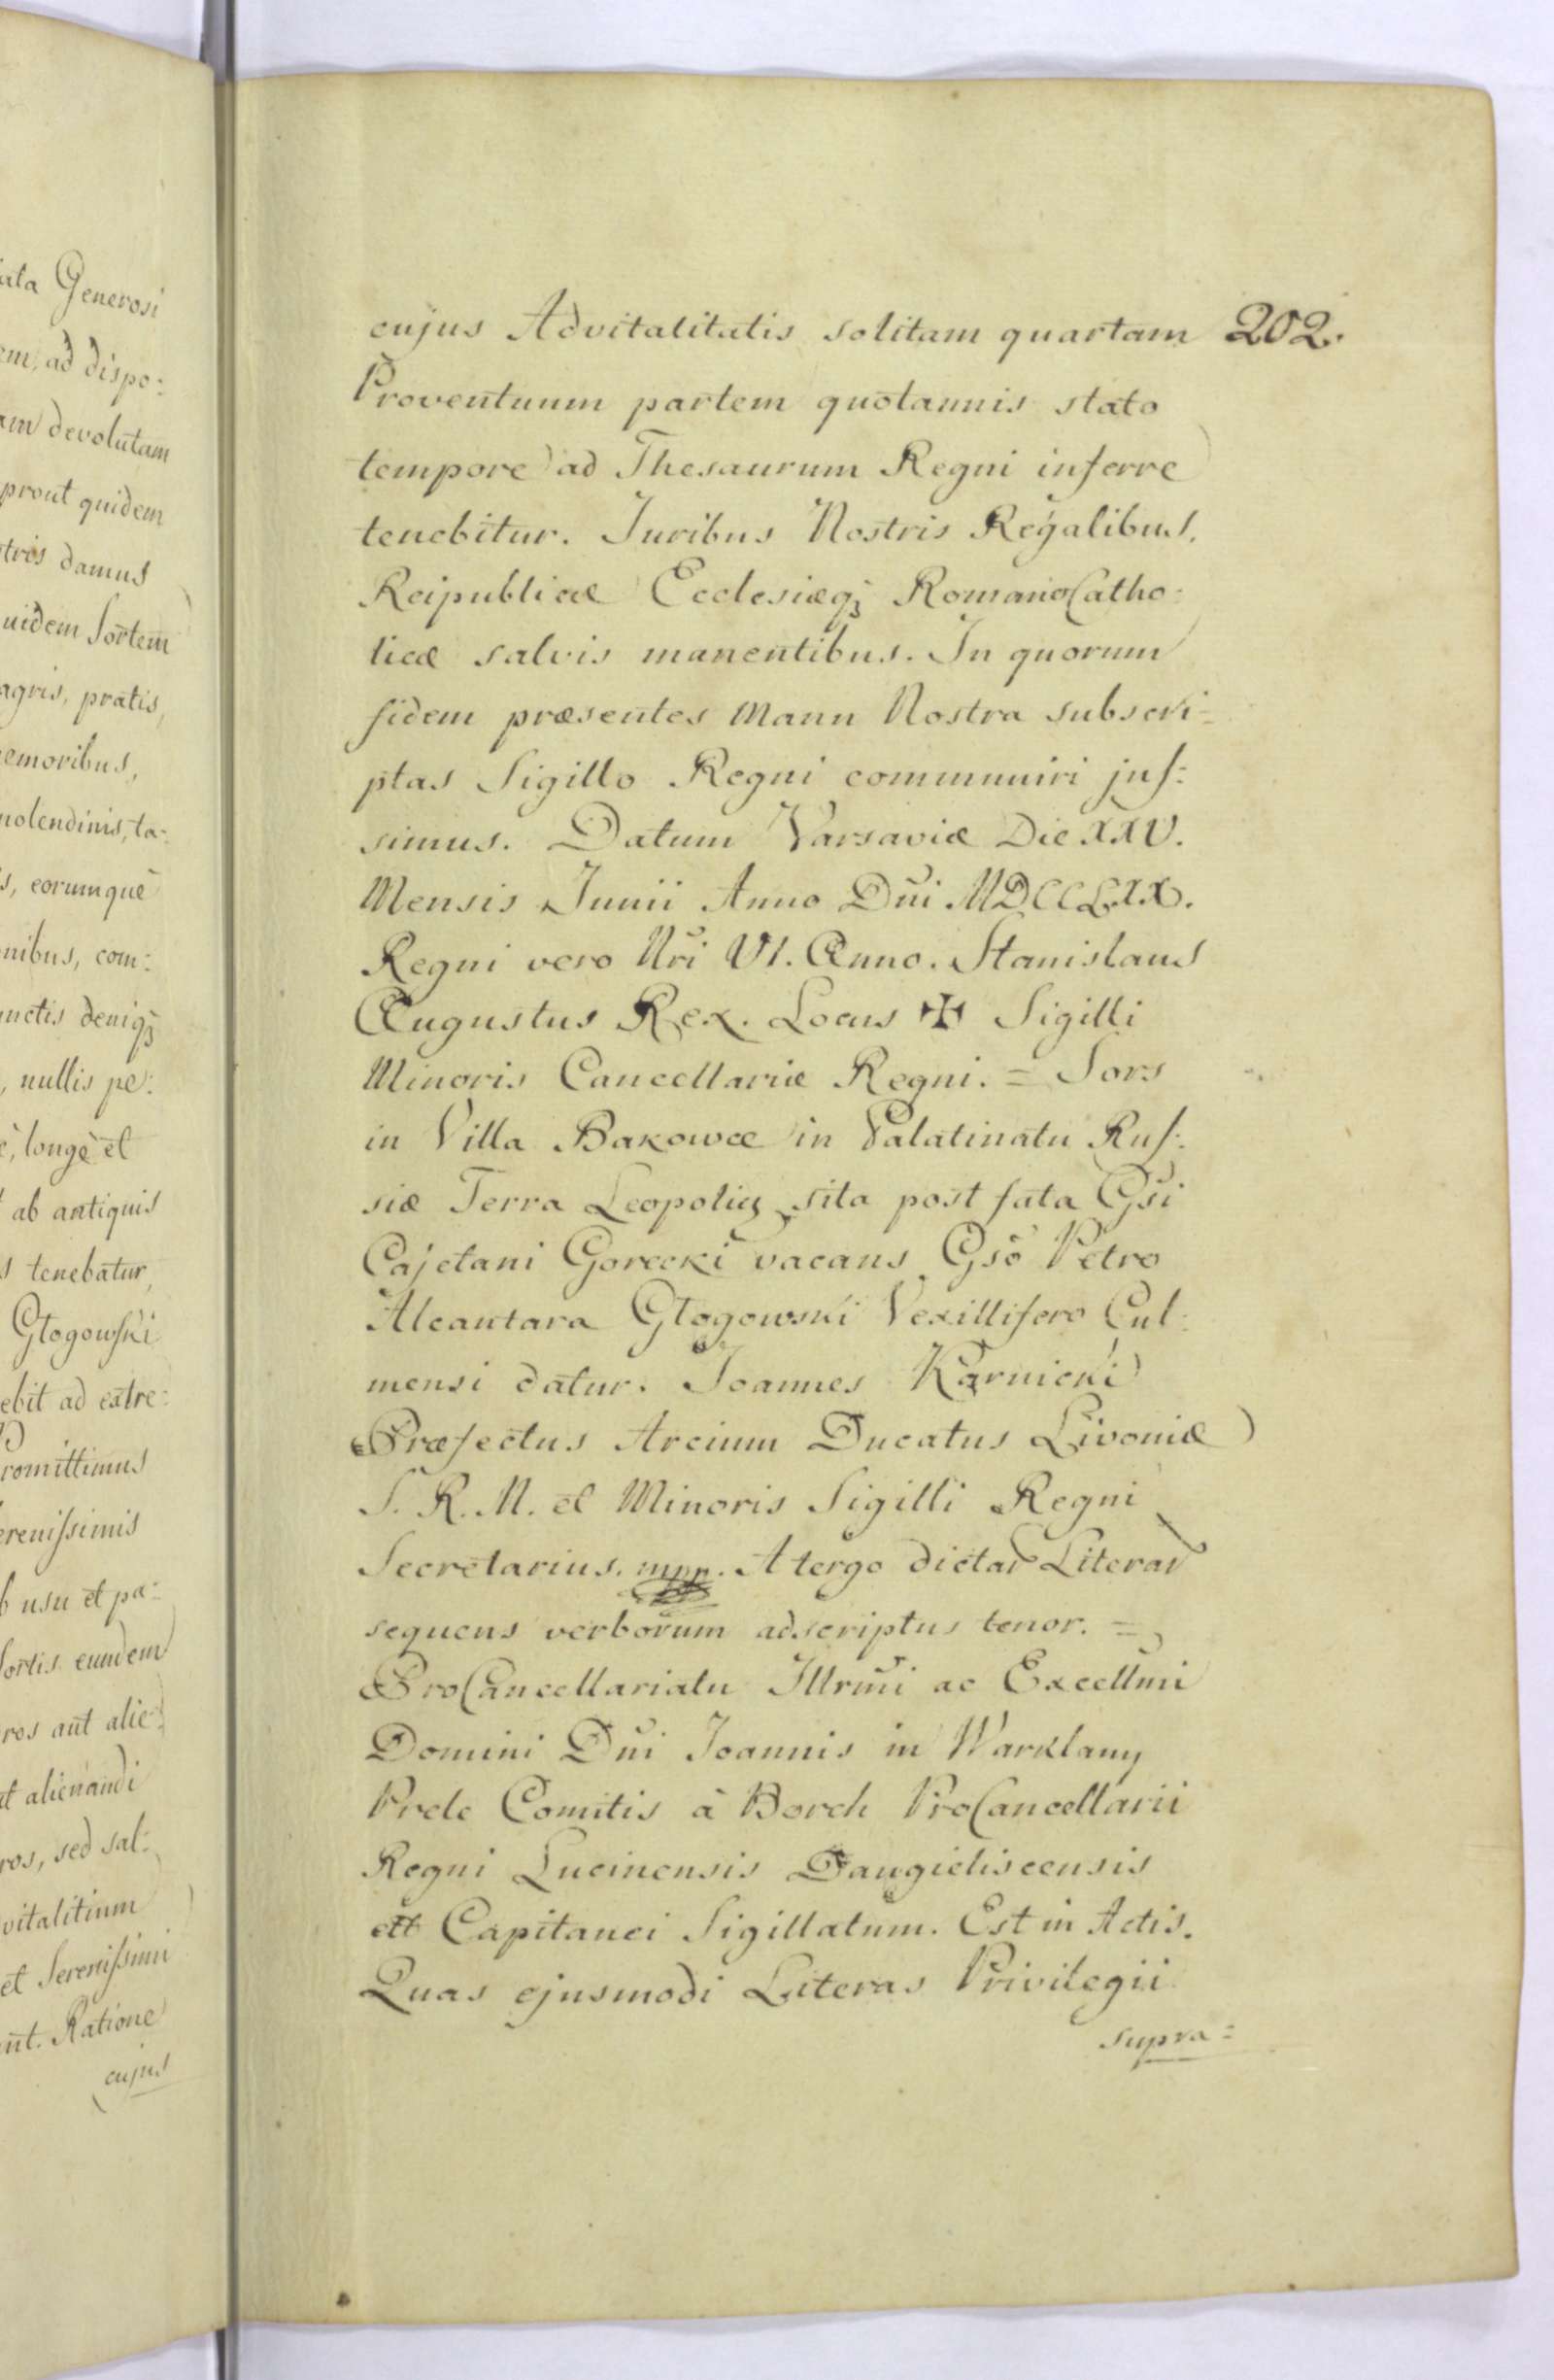 ata Generosi
em, ad dispo:
am devolutam
prout quidem
tris damus
uidem Sortem
agris, pratis,
emoribus,
nolendinis, ta:
s, eorumque
nibus, com:
unctis deniqꝫ
, nullis pe:
è, longè et
ab antiquis
s tenebatur,
Głogowski
ebit ad extre:
romittimus
erenissimis
b usu et pa:
Sortis eundem
ros aut alie:
ut alienandi
ros, sed sal:
vitalitium
et Serenissimi
unt. Ratione
cujus
202.
cujus Advitalitatis solitam quartam
Proventuum partem quotannis stato
tempore ad Thesaurum Regni inferre
tenebitur. Juribus Nostris Regalibus,
Reipublicæ Ecclesiæqꝫ RomanoCatho:
licæ salvis manentibus. In quorum
fidem præsentes Manu Nostra subscri=
ptas Sigillo Regni communiri jus:
simus. Datum Varsaviæ Die XXV.
Mensis Junii Anno Dni MDCCLXX.
Regni vero Nri VI. Anno. Stanislaus
Augustus Rex. Locus ✠ Sigilli
Minoris Cancellariæ Regni. = Sors
in Villa Bakowce in Palatinatu Rus:
siæ Terra Leopolien sita post fata Gsi
Cajetani Gorecki vacans Gso Petro
Alcantara Głogowski Vexillifero Cul:
mensi datur. Joannes Karnicki
Præfectus Arcium Ducatus Livoniæ
S. R. M. et Minoris Sigilli Regni
Secretarius. mpp. A tergo dictar Literar
sequens verborum adscriptus tenor. =
ProCancellariatu Illrmi ac Excellmi
Domini Dni Joannis in Warklany
Prele Comitis à Borch ProCancellarii
Regni Lucinensis Daugieliscensis
ett Capitanei Sigillatum. Est in Actis.
Quas ejusmodi Literas Privilegii
supra=